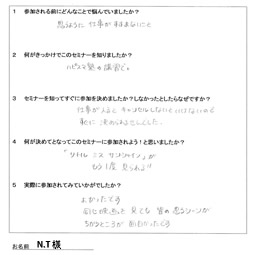 1 参加される前にどんなことで悩んでいましたか？
思うように 仕事が すすまないこと
2 何がきっかけでこのセミナーを知りましたか？
の講習で。
3 セミナーを知ってすぐに参加を決めましたか？しなかったとしたらなぜですか？
仕事が入ると キャンセルしないといけないので
すぐに 決められませんでした。
4 何が決めてとなってこのセミナーに参加されよう！と思いましたか？
「リトル ミス サンシャイン」が
もう1度 見られる!!
5 実際に参加されてみていかがでしたか？
よかったです
同じ映画を 見ても 皆の思うシーンが
ちがうところが おもしろかったです
お名前 N.T様